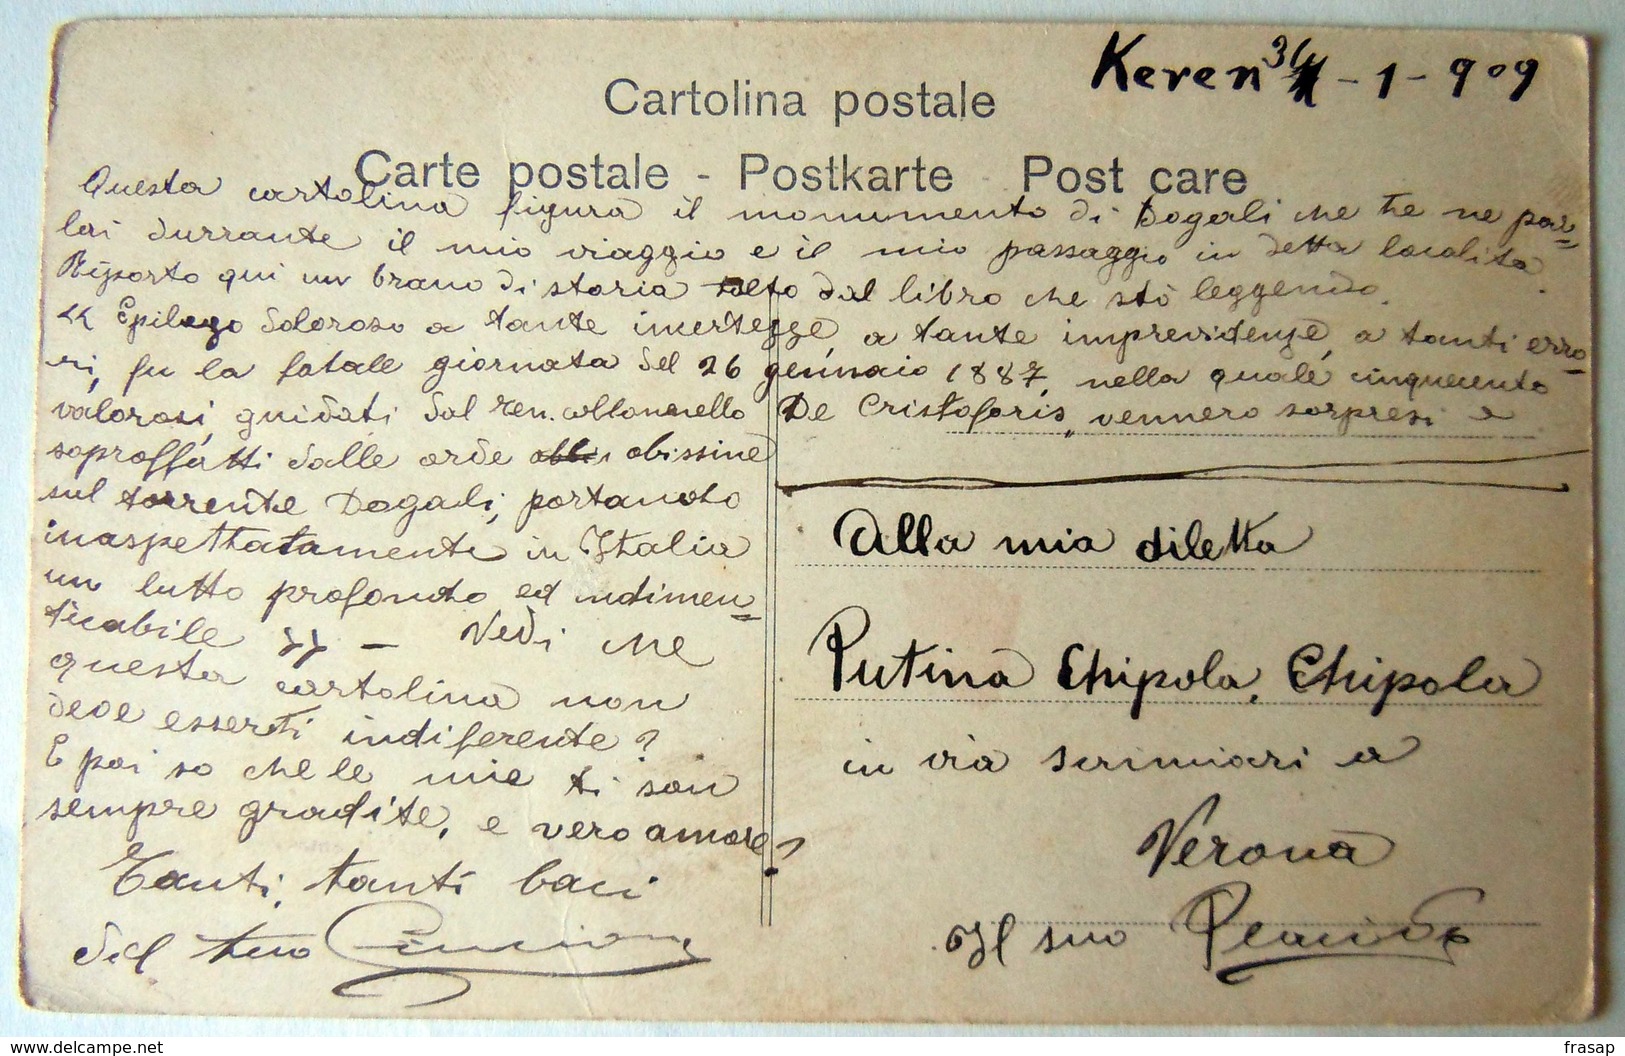 Keren 31-1-909
Cartolina postale
Carte postale - Postkarte Post care
Questa cartolina figura il monumento di Dogali che te ne par=
lai durrante il mio viaggio e il mio passaggio in detta localita.
Riporto qui un brano di storia tolto dal libro che stò leggendo.
« Epilogo doloroso a tante incertezze, a tante imprevidenze, a tanti erro=
ri, fu la fatale giornata del 26 gennaio 1887, nella quale cinquecento
valorosi, guidati dal ten. collonnello De Cristoforis, vennero sorpresi e
sopraffatti dalle orde abissine
sul torrente Dogali, portando
inaspettatamente in Italia
un lutto profondo ed indimen=
ticabile » - Vedi che
questa cartolina non
deve esserti indiferente?
E poi so che le mie ti son
sempre gradite, e vero amore?
Tanti, tanti baci
del tuo
Alla mia diletta
Putina Chipola, Chipola
in via Scrimiari a
Verona
Il suo
frasap
delcampe.net